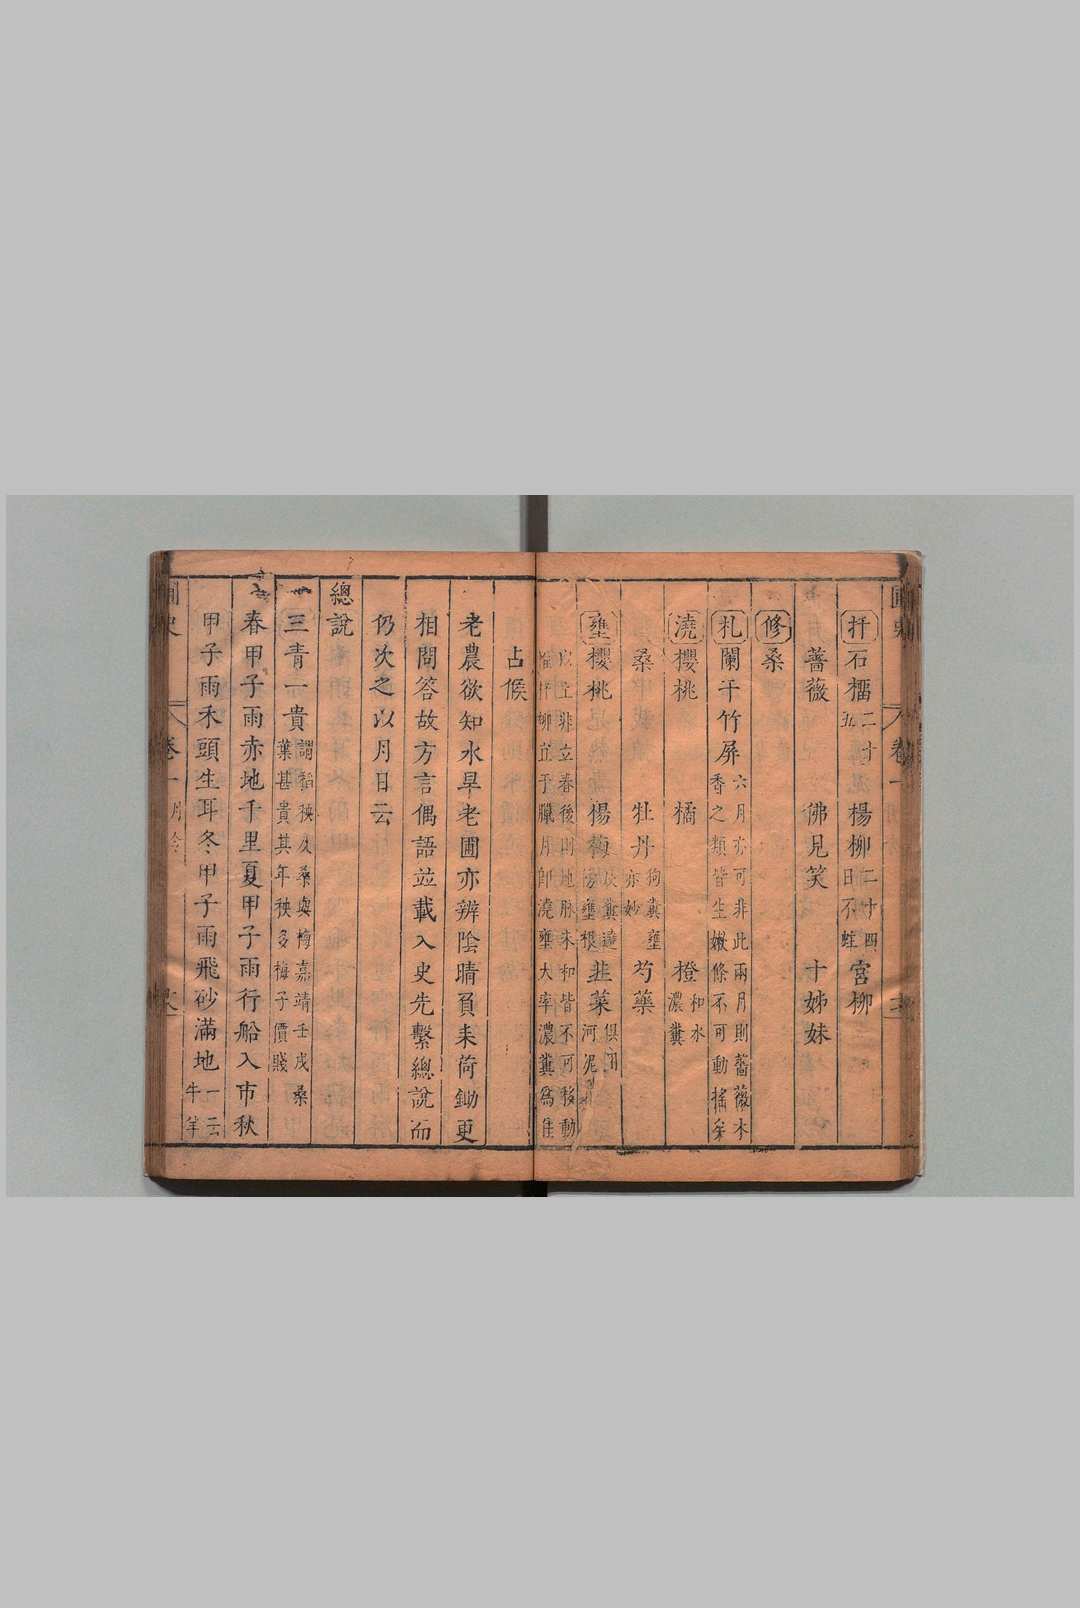 扦石橊二十五楊柳二十四日不蛀宮柳
薔薇佛見笑十姊妹
修桑
札闌干竹屏六月亦可非此兩月則薔薇木香之類皆生嫩條不可動搖矣
澆櫻桃橘橙和水濃糞
桑牡丹狗糞壅亦妙芍藥
壅櫻桃楊梅糞遶壅根韭菜俱用河泥
以上非立春後則地脉未和皆不可移動扦柳立于臘月即澆壅大率濃糞為佳
占候
老農欲知水旱老圃亦辨陰晴負耒荷鋤更
相問答故方言偶語並載入史先繫總說而
仍次之以月日云
總說
三青一貴謂稻秧及桑與梅嘉靖壬戌桑葉甚貴其年秧多梅子價賤
春甲子雨赤地千里夏甲子雨行船入市秋
甲子雨禾頭生耳冬甲子雨飛砂滿地一云牛羊
史 卷一 月令